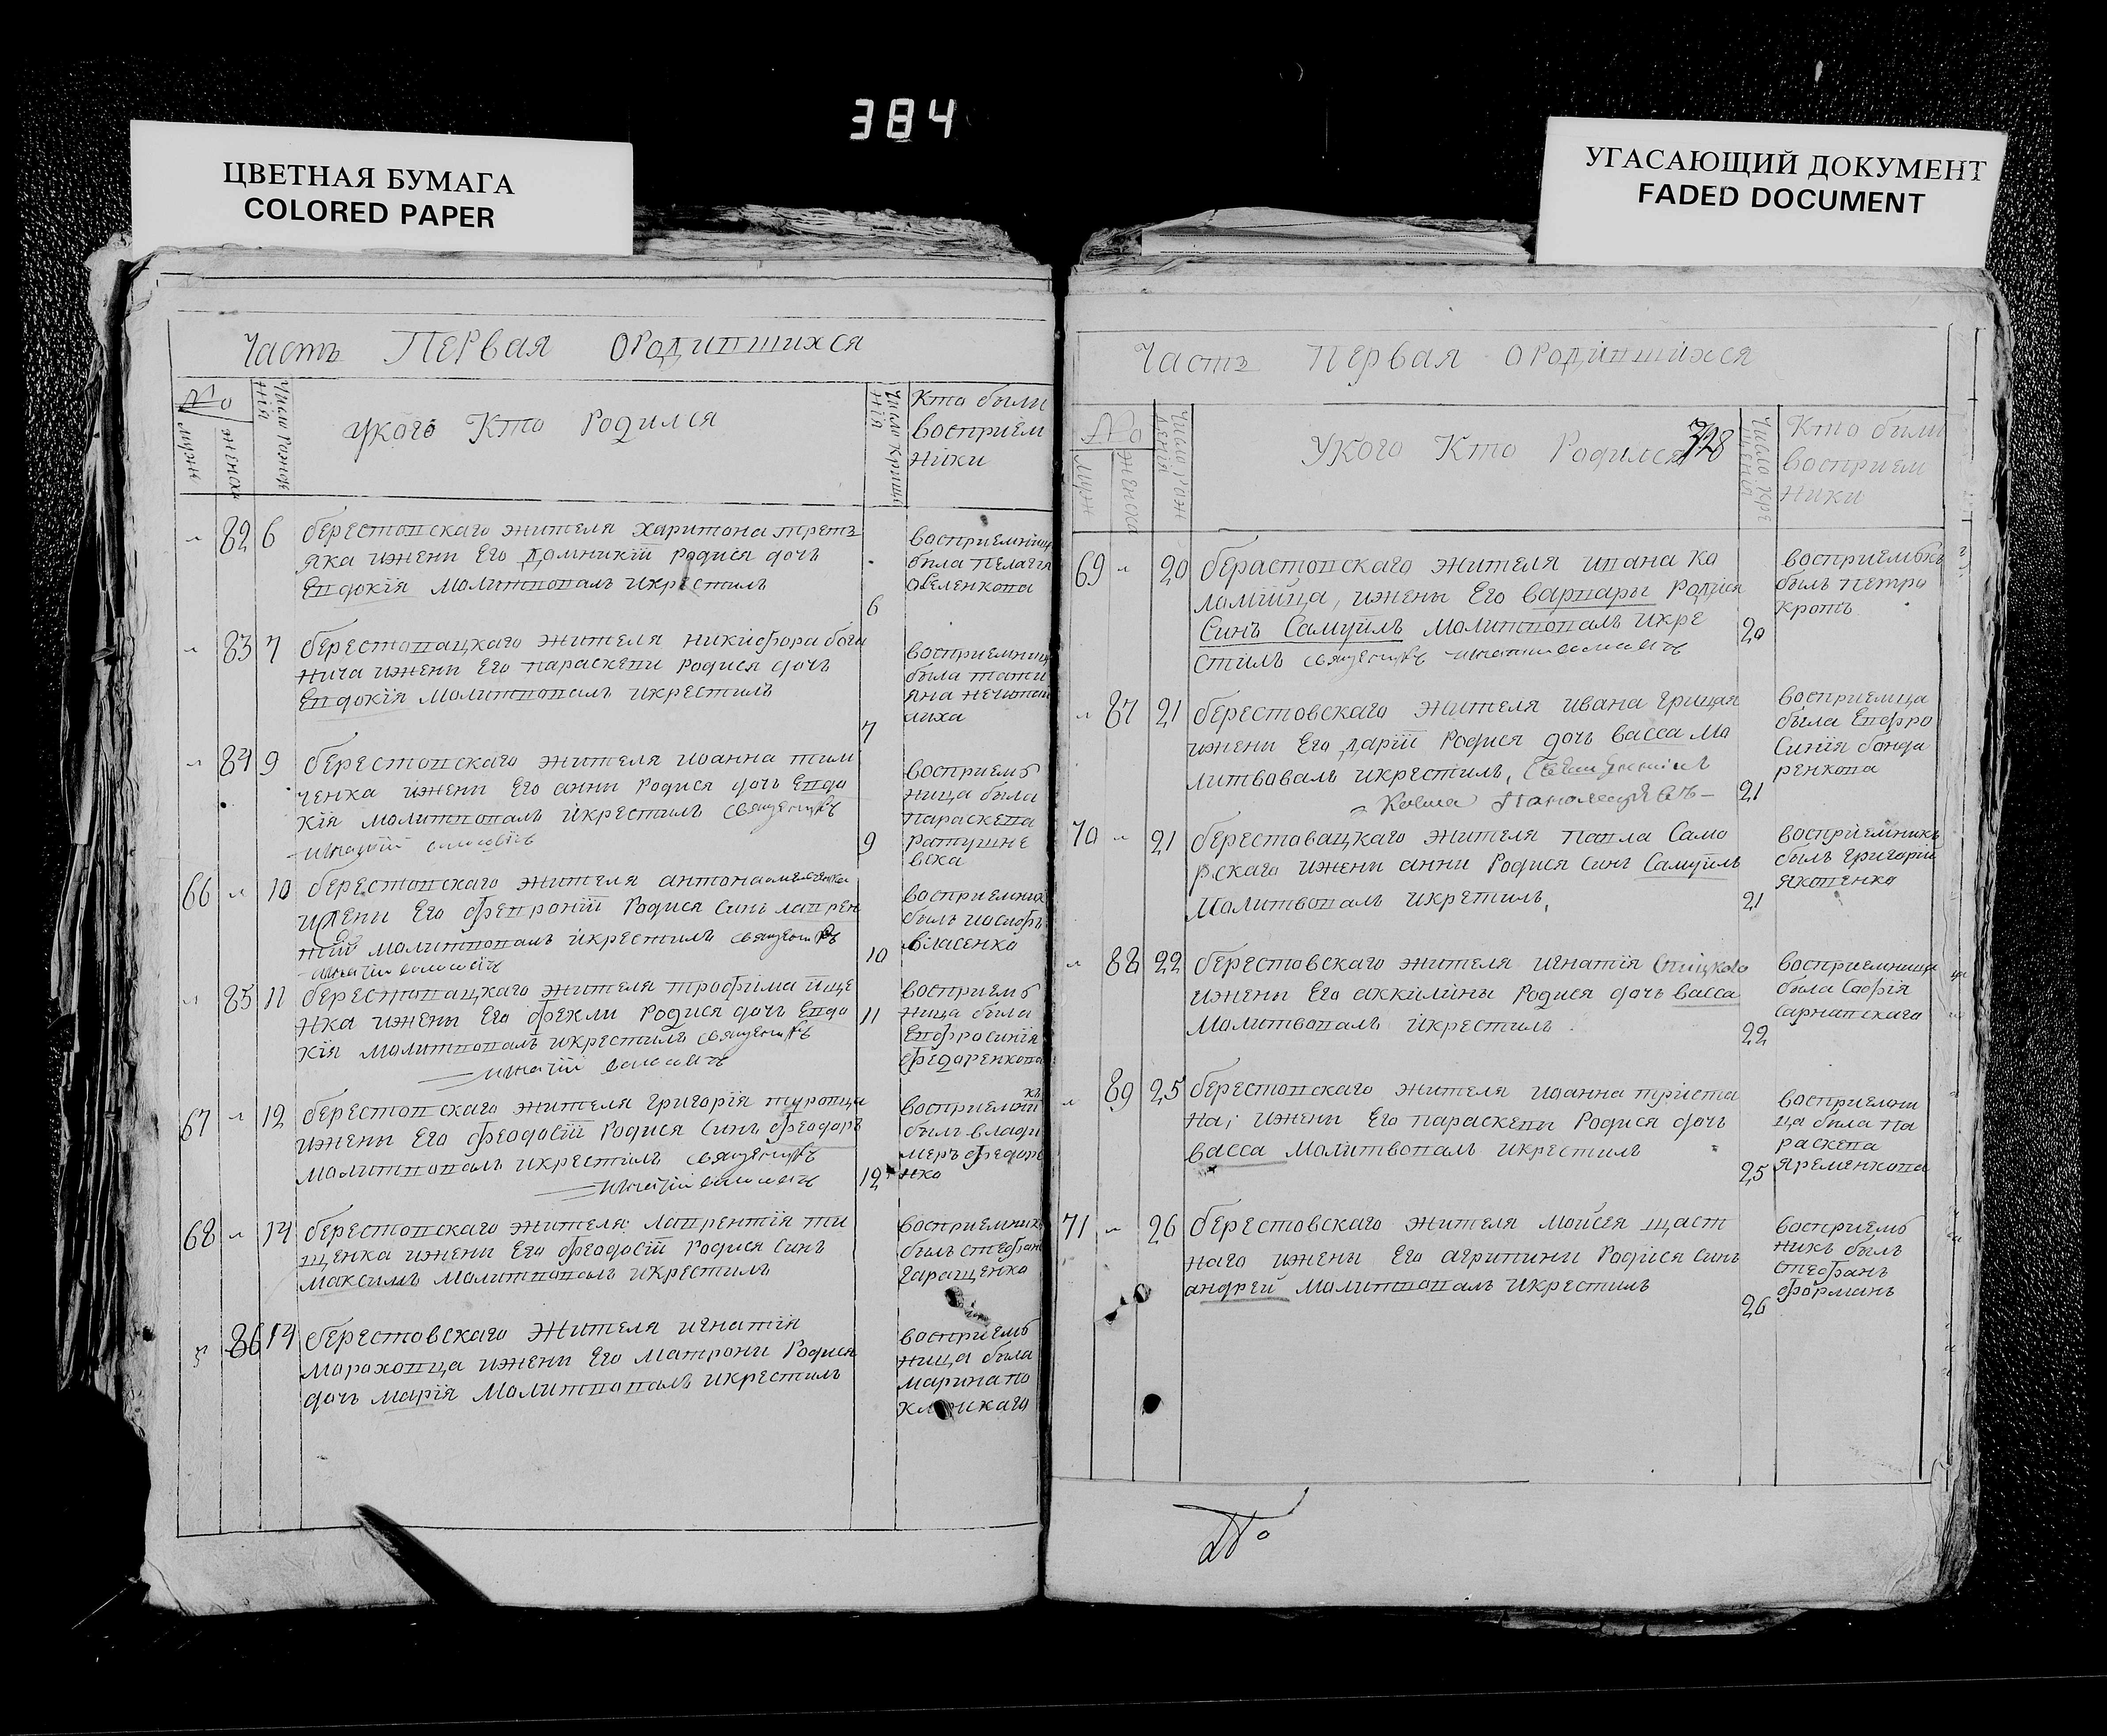 384
ЦВЕТНАЯ БУМАГА
COLORED PAPER
УГАСАЮЩИЙ ДОКУМЕНТ
FADED DOCUMENT
Часть Первая ородившихся
№
мужи
женска
Число Рожде
нія
укого Кто Родился
Число Крище
нія
Кто были
восприем
ники
82 6 берестовскаго жителя харитона трет
яка ижени Его домникіи родися дочь
Евдокія молитвовалъ икрестилъ
6
восприемница
била пелагія
83 7 берестовацкаго жителя никифора боги
нича ижени Его параскеви родися дочь
Евдокія молитвовалъ икрестилъ
7
восприемница
была тати
яна нечитай
лиха
84 9 берестовскаго жителя иоанна тим
ченка ижени Его анни Родися дочь Евдо
кія молитвовалъ икрестилъ священикъ
9
восприемъ
ница была
параскева
ратушне
вска
66 10 берестовскаго жителя антона
ижени Его февроніи Родися синъ лаврен
тій молитвовалъ икрестилъ священикъ
10
восприемник
былъ иосифъ
власенко
85 11 берестовацкаго жителя трофима ище
нка ижени Его фекли родися дочь Евдо
кія молитвовалъ икрестилъ священикъ
11
восприемъ
ница была
Евфросинія
федаренкова
67 12 берестовскаго жителя григорія туровца
ижени Его феодосіи Родися синъ феодоръ
молитвовалъ икрестилъ священикъ
12
восприемни
къ
былъ влади
меръ федоре
нко
68 14 берестовскаго жителя лаврентія ти
щенка ижени Его феодосіи Родися синъ
максимъ молитвовалъ икрестилъ
восприемник
былъ стефан
гаращенко
86 14 берестовскаго жителя игнатія
мараховца ижени Его матрони Родися
дочь марія молитвовалъ икрестилъ
восприемъ
ница была
марина по
Часть Первая ородившихся
№
муж
женска
Число рож
денія
Укого Кто Родился
328
Число кре
щенія
Кто были
восприем
ники
69 20 берастовскаго жителя ивана ко
ломийца, ижены Его варвары Родися
Синъ Самуилъ молитвовалъ икре
стилъ священикъ
20
восприемникъ
былъ петро
кротъ
87 21 берестовскаго жителя ивана грицая
ижени Его даріи Родися дочь васса мо
литвовалъ икрестилъ,
21
восприемица
была Евфро
Синія бонда
ренкова
70 21 берестовацкаго жителя павла Само
рскаго ижени анни Родися Синъ Самуилъ
Молитвовалъ икретилъ,
21
восприемникъ
былъ григорій
яковенко
88 22 берестовскаго жителя игнатія
ижены Его аккилины Родися дочь васса
Молитвовалъ икрестилъ
22
восприемница
была Софія
сарнавскаго
89 25 берестовскаго жителя иоанна триста
на; ижени Его параскеви Родися дочь
васса Молитвовалъ икрестилъ
25
восприемни
ца была па
раскева
яременкова
71 26 берестовскаго жителя моисея щаст
наго ижены Его агрипини Родися синъ
андрей Молитвовалъ икрестилъ
26
восприемъ
никъ былъ
стефанъ
форманъ